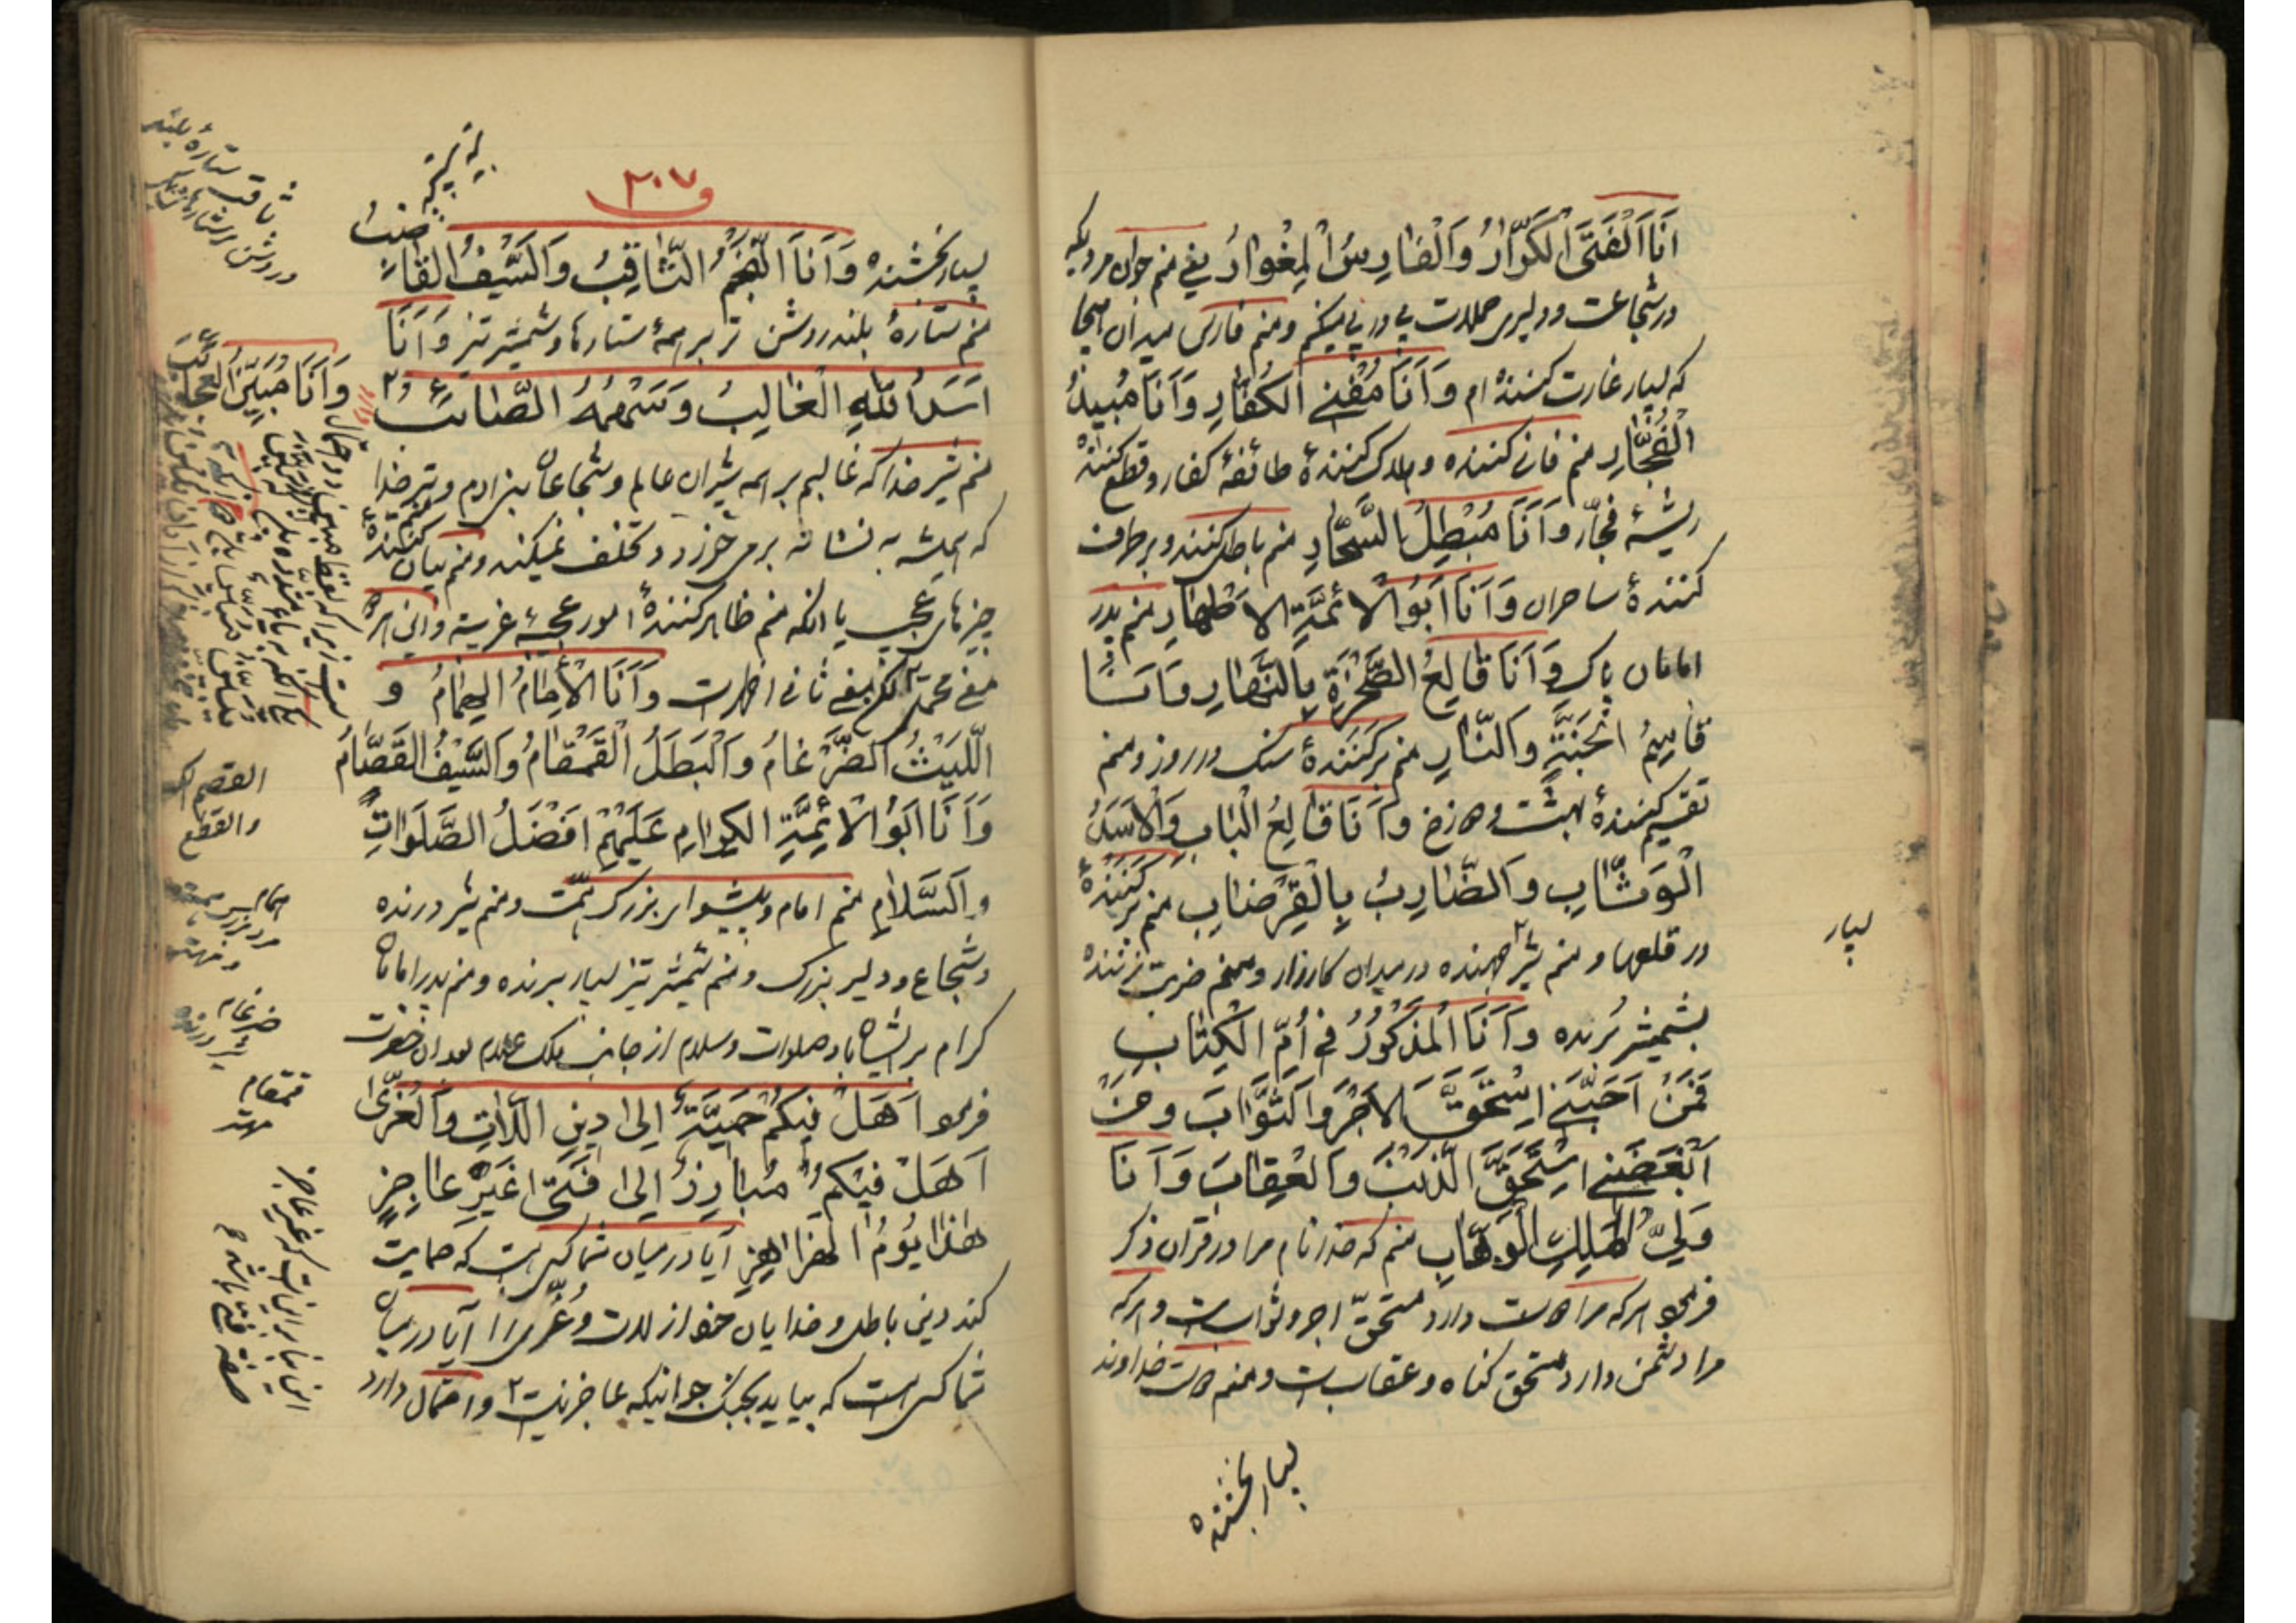 اَنَا الْفَتَى الْكَرّٰارُ وَالْفٰارِسُ الْمِغْوٰارُ یعنی منم جوان مردیکه
در شجاعت و دلیری حملات پی در پی میکنم و منم فارس میدان هیجا
که بسیار غارت کننده‌ام وَاَنَا مُفْنِی الْكُفّٰارِ وَاَنَا مُبِیدُ
الْفُجّٰارِ منم فانی کننده و هلاک کنندهٔ طائفهٔ کفار و قطع کننده
ریشهٔ فجّار وَاَنَا مُبْطِلُ السَّحّٰارِ منم باطل کننده و برطرف
کنندهٔ ساحران وَاَنَا اَبُو الْاَئِمَّةِ الْاَطْهٰارِ منم پدر
امامان پاک وَاَنَا قٰالِعُ الصَّخْرَةِ بِالنَّهٰارِ وَاَنَا
قٰاسِمُ الْجَنَّةِ وَالنّٰارِ منم برکنندهٔ سنک در روز و منم
تقسیم کنندهٔ بهشت و دوزخ وَاَنَا قٰالِعُ الْبٰابِ وَالْاَسَدُ
الْوَثّٰابِ وَالضّٰارِبُ بِالْقِرْضٰابِ منم برکنندهٔ
در قلعها و منم شیر جهنده در میدان کارزار و منم ضربت زننده
بشمشیر بُرنده وَاَنَا الْمَذْكُورُ فی اُمِّ الْكِتٰابِ
فَمَنْ اَحَبَّنی اِسْتَحَقَّ الْاَجْرَ وَالثَّوٰابَ وَمَنْ
اَبْغَضَنی اِسْتَحَقَّ الذَّنْبَ وَالْعِقٰابَ وَاَنَا
وَلِیُّ الْمَلِكِ الْوَهّٰابِ منم که خدا نام مرا در قران ذکر
فرموده هر که مرا دوست دارد مستحقّ اجر و ثوابست و هر که
مرا دشمن دارد مستحق کناه و عقابست و منم دوست خداوند
بسیار بخشنده
بسیار
و ۲۰۷
بسیار بخشنده وَاَنَا النَّجْمُ الثّٰاقِبُ وَالسَّیْفُ القٰاضِبُ
منم ستارهٔ بلند روشن تر بر همهٔ ستارها و شمشیر تیز وَاَنَا
اَسَدُ اللهِ الْغٰالِبُ وَسَهْمُهُ الصّٰائِبُ
منم شیر خدا که غالبم بر همه شیران عالم و شجاعان بنی ادم و تیر خدا
که همیشه به نشانه برمی‌خورد و تخلف نمیکند و منم بیان کننده
چیزهای عجیب یا انکه منم ظاهر کنندهٔ امور عجیبهٔ غریبه و این هر دو
وَاَنَا الْاِمٰامُ الهُمٰامُ و
اللَّیْثُ الضَّرْغٰامُ وَالْبَطَلُ الْقَمْقٰامُ وَالسَّیْفُ القَصّٰامُ
وَاَنَا اَبُو الْاَئِمَّةِ الكِرٰامِ عَلَیْهِمْ اَفْضَلُ الصَّلَوٰاتِ
وَالسَّلٰامِ منم امام و پیشوای بزرک همّت و منم شیر درنده
و شجاع و دلیر بزرک و منم شمشیر تیز بسیار برنده و منم پدر امامان
کرام بر ایشان باد صلوات و سلام از جانب ملک علام بعد ان حضرت
فرمود اَهَلْ فیكُمْ حَمِیَّةٌ اِلیٰ دینِ اللّٰاتِ وَالْعُزّٰی
اَهَلْ فیكُمْ مُبٰارِزٌ اِلیٰ فَتًی غَیْرِ عٰاجِزٍ
هٰذٰا یَوْمُ الهَزٰاهِزِ آیا در میان شما کسی هست که حمایت
کند دین باطل و خدایان خود از لات و عُزّی را آیا در میان
شما کسی هست که بیاید بجنک جوانیکه عاجز نیست و احتمال دارد
ثاقب ستارهٔ بلند
وَاَنَا مُبَیِّنُ العَجٰائِبِ
القصم
والقطع
همام
مرد بزرک همت
و مهتر
ضرغام
شیر درنده
قمقام
مهتر